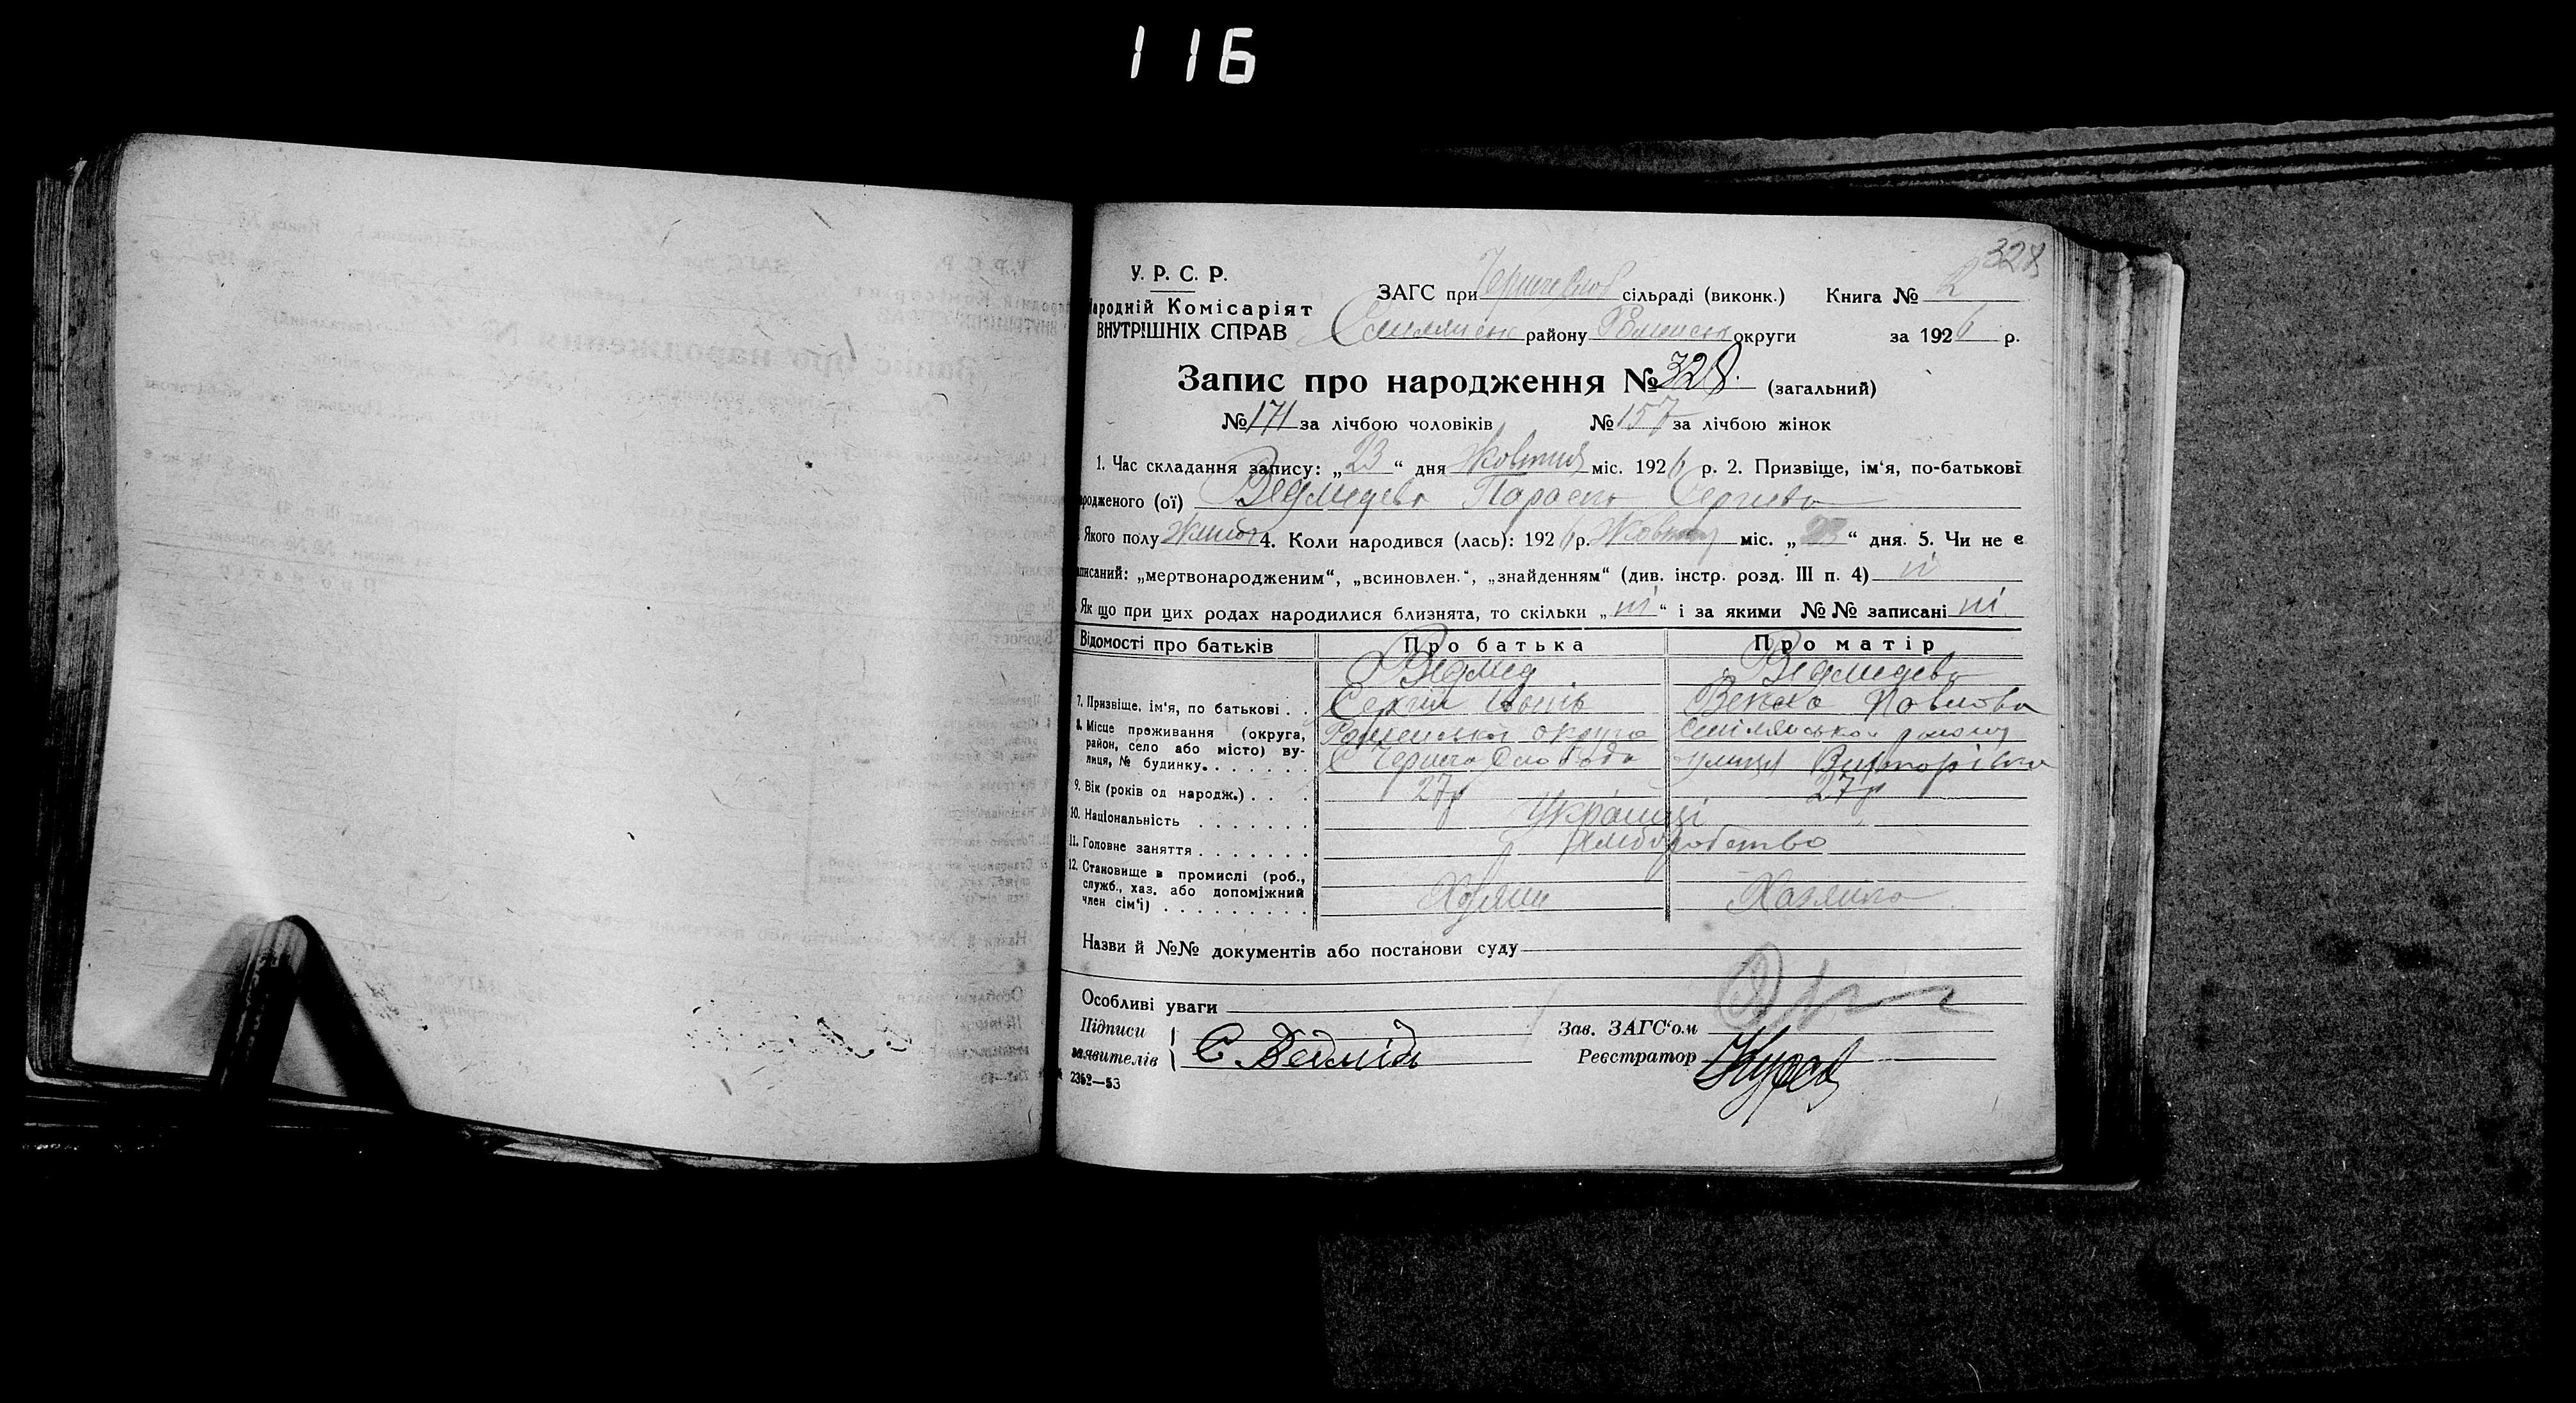 116
328
У. Р. С. Р.
Народній Комісаріят
ВНУТРІШНІХ СПРАВ
ЗАГС при сільраді (виконк.) Книга № 2
району округи за 1926 р.
Запис про народження № 328. (загальний)
№ 171 за лічбою чоловіків № 157 за лічбою жінок
1. Час складання запису: „23“ дня Жовтня міс. 1926 р. 2. Призвіще, ім‘я, по-батькові
родженого (ої) Ведмедева Параска Сергиева
Якого полу 4. Коли народився (лась): 1926 р. Жовтня міс. „23“ дня. 5. Чи не є
аписаний: „мертвонародженим“, „всиновлен.“, „знайденням“ (див. інстр. розд. III п. 4) ні
Як що при цих родах народилися близнята, то скільки „ні“ і за якими №№ записані ні
Відомості про батьків Про батька Про матір
Ведмед Ведмедева
7. Призвіще, ім‘я, по батькові . . Сергій Павлова
8. Місце проживання (округа, Роменська округа Смілянського району
район, село або місто) ву-
лиця, № будинку. . . . . . . С Чернеча Слобода улиця
9. Вік (років од народж.) . . . 27р 27р
10. Національність . . . . . . . Українці
11. Головне заняття . . . . . . . Хліборобство
12. Становище в промислі (роб.,
служб., хаз. або допоміжний
член сім‘ї) . . . . . . . . . Хазяин Хазяйка
Назви й №№ документів або постанови суду
Особливі уваги
Підписи
заявителів С. Ведмідь
Зав. ЗАГС‘ом
Реєстратор
2352—53